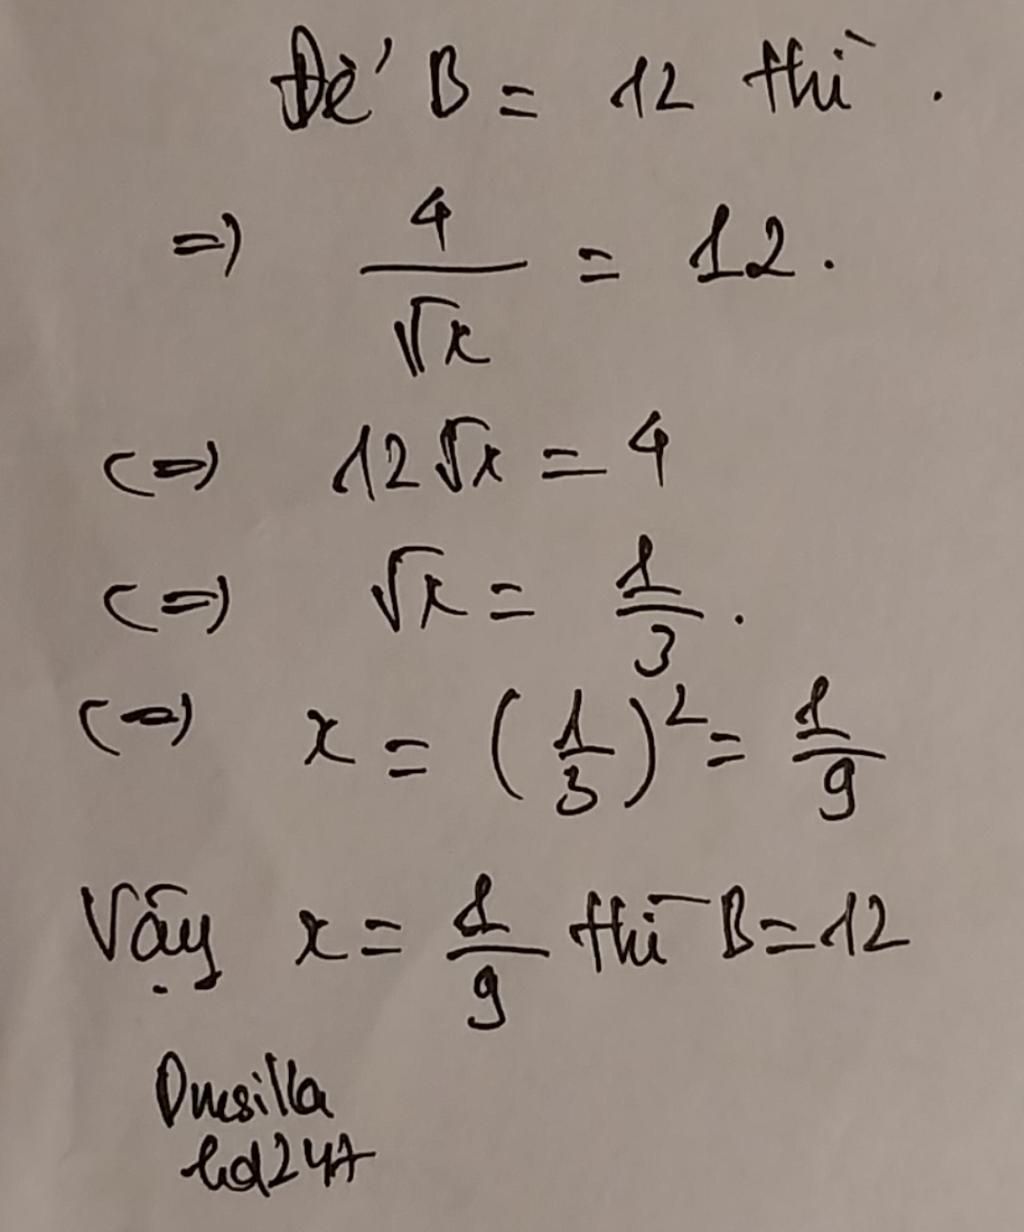 Để B = 12 thì.
=) 4/√x = 12.
(=) 12√x = 4
(=) √x = 1/3.
(=) x = (1/3)² = 1/9
Vậy x = 1/9 thì B = 12
Drusilla
hd247